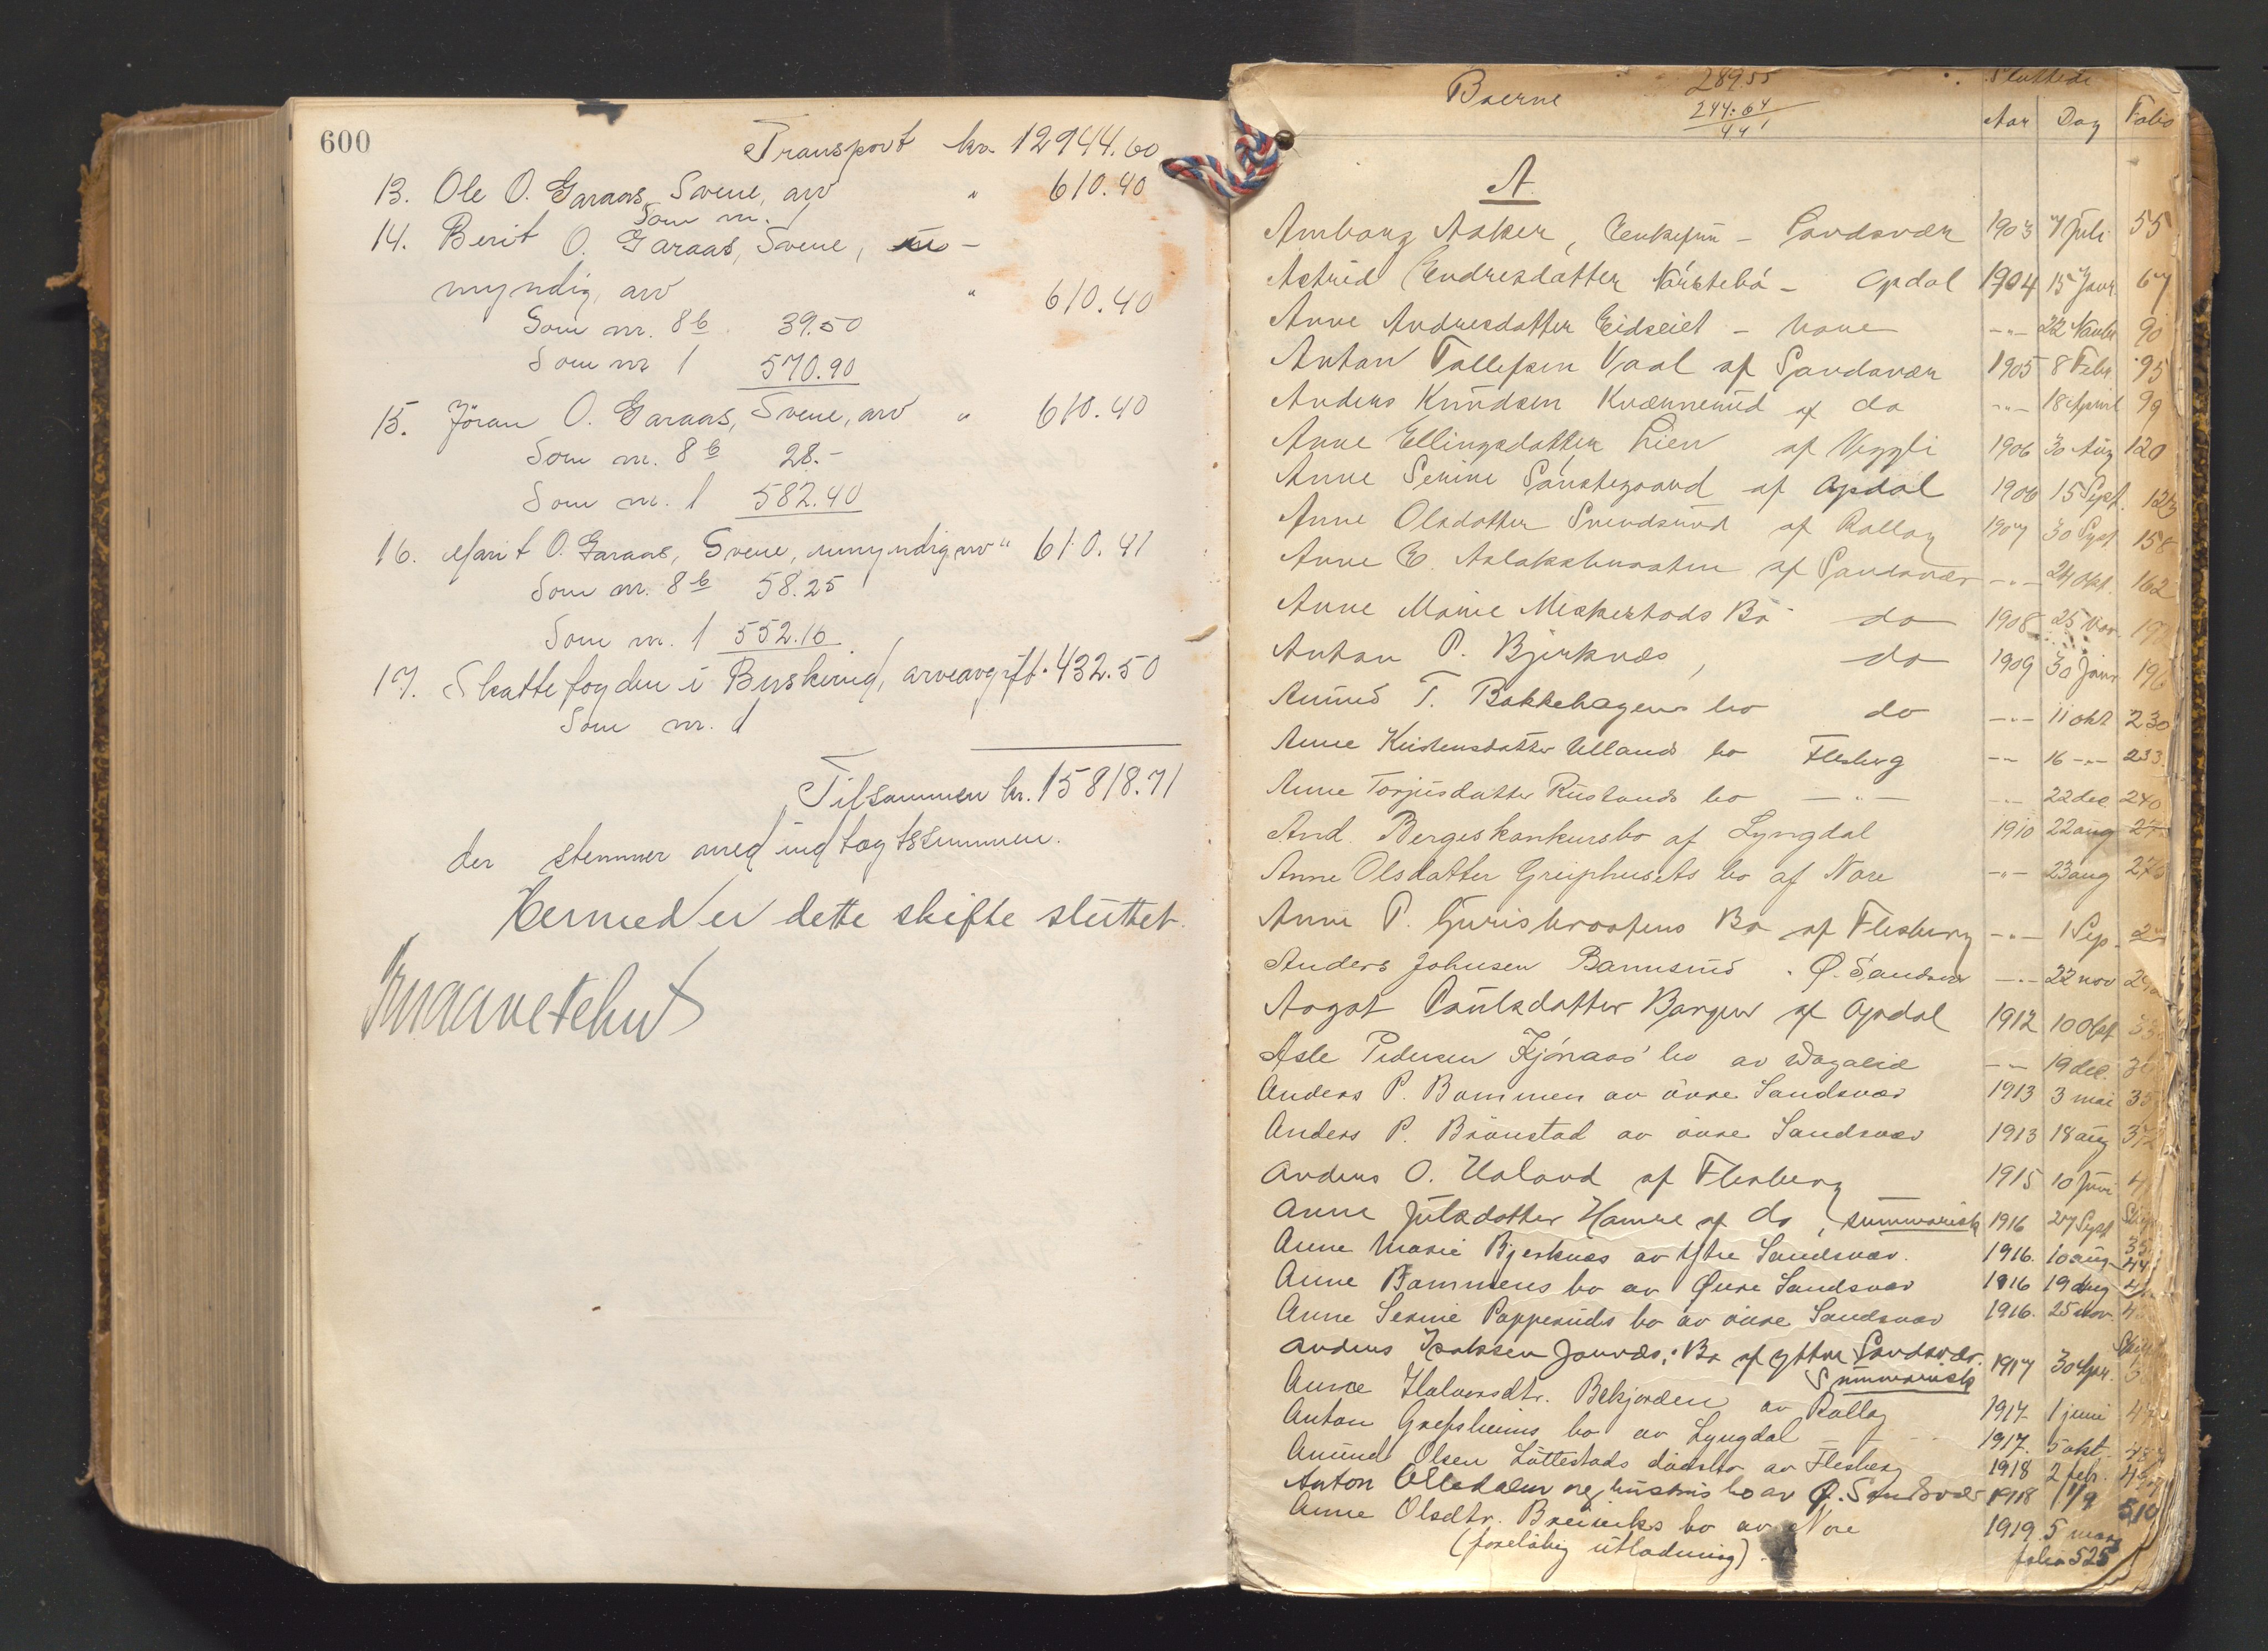 600
Transport kr. 12944.60
13. Ole O. Garaas, Svene, arv " 610.40
Som nr. 1
14. Berit O. Garaas, Svene, u-
myndig, arv " 610.40
Som nr. 8b 39.50
Som nr 1 570.90
15. Jöran O. Garaas, Svene, arv " 610.40
Som nr. 8b 28.-
Som nr. 1 582.40
16. Marit O. Garaas, Svene, umyndig, arv " 610.41
Som nr. 8b 58.25
Som nr. 1 552.16
17. Skattefogden i Buskerud, arveavgift. 432.50
Som nr. 1
Tilsammen kr. 15818.71
der stemmer med indtægtssummen.
Hermed er dette skifte sluttet.
Boerne 289.55 Sluttede
244.64 Aar Dag Folio
441
A.
Amborg Aaker, Enkefru - Sandsvær 1903 4 Juli 55
Astrid Endresdatter Nörstebö - Opdal 1904 15 Janr. 67
Anne Andresdatter Eidseiet - Nore -"- 22 Novbr 90
Anton Tollefsen Vaal af Sandsvær 1905 8 Febr. 95
Anders Knudsen Kvænnerud af do -"- 18 April 99
Anne Ellingsdatter Lien af Veggli 1906 30 Aug 120
Anne Serine Sönstegaard af Opdal 1906 15 Sept. 123
Anne Olsdatter Svendsrud af Rollag 1907 30 Sept 158
Anne E. Aslaksbraaten af Sandsvær -"- 24 Okt. 162
Anne Marie Meskestads Bo do 1908 25 Nov.
Anton P. Bjerknæs, do 1909 30 Janr 196
Amund T. Bakkehagens bo do -"- 11 okt 230
Anne Kristensdatter Ullands bo Flesberg -"- 16 -"- 233.
Anne Torjusdatter Ruslands bo -"- -"- 22 dec 240
And. Berges konkursbo af Lyngdal 1910 22 aug 27
Anne Olsdatter Greiphusets bo af Nore -"- 23 aug 276
Anne P. Gurisbraatens Bo af Flesberg -"- 1 Sep.
Anders Johnsen Bamrud. Ø. Sandsvær -"- 22 nov
Aagot Paulsdatter Bergen af Opdal 1912 10 Okt
Asle Pedersen Kjönaas' bo av -"- 19 dec.
Anders P. Bommen av övre Sandsvær 1913 3 mai 35
Anders P. Brönstad av övre Sandsvær 1913 18 aug 372
Anders O. Haland af Flesberg 1915 10 Juni
Anne Julsdatter Hamre af do, summarisk 1916 27 Sept
Anne Marie Bjerknæs av Ytre Sandsvær. 1916. 10 aug
Anne Bommens bo av Øvre Sandsvær 1916 19 aug
Anne Serine Papperuds bo av övre Sandsvær 1916. 25 nov.
Anders Isaksen Jonnæs, Bo af Yttre Sandsvær. 1917 30 Apr.
Summarisk
Anne Halvorsdtr. Bekjorden av Rollag 1917 1 juni
Anton Grefsheims bo av Lyngdal 1917. 5 okt.
Amund Olsen Lättestads dödsbo av Flesberg 1918 2 febr.
Anton Olledalen og hustrus bo av Ø. Sandsvær 1918 11/9 510
Anne Olsdtr. Breiviks bo av Nore 1919 5 mars
(foreløbig utlodning) folio 525